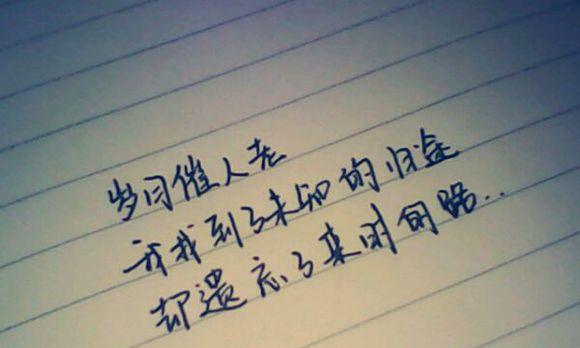 岁月催人老
我找到了未知的归途
却遗忘了来时的路..